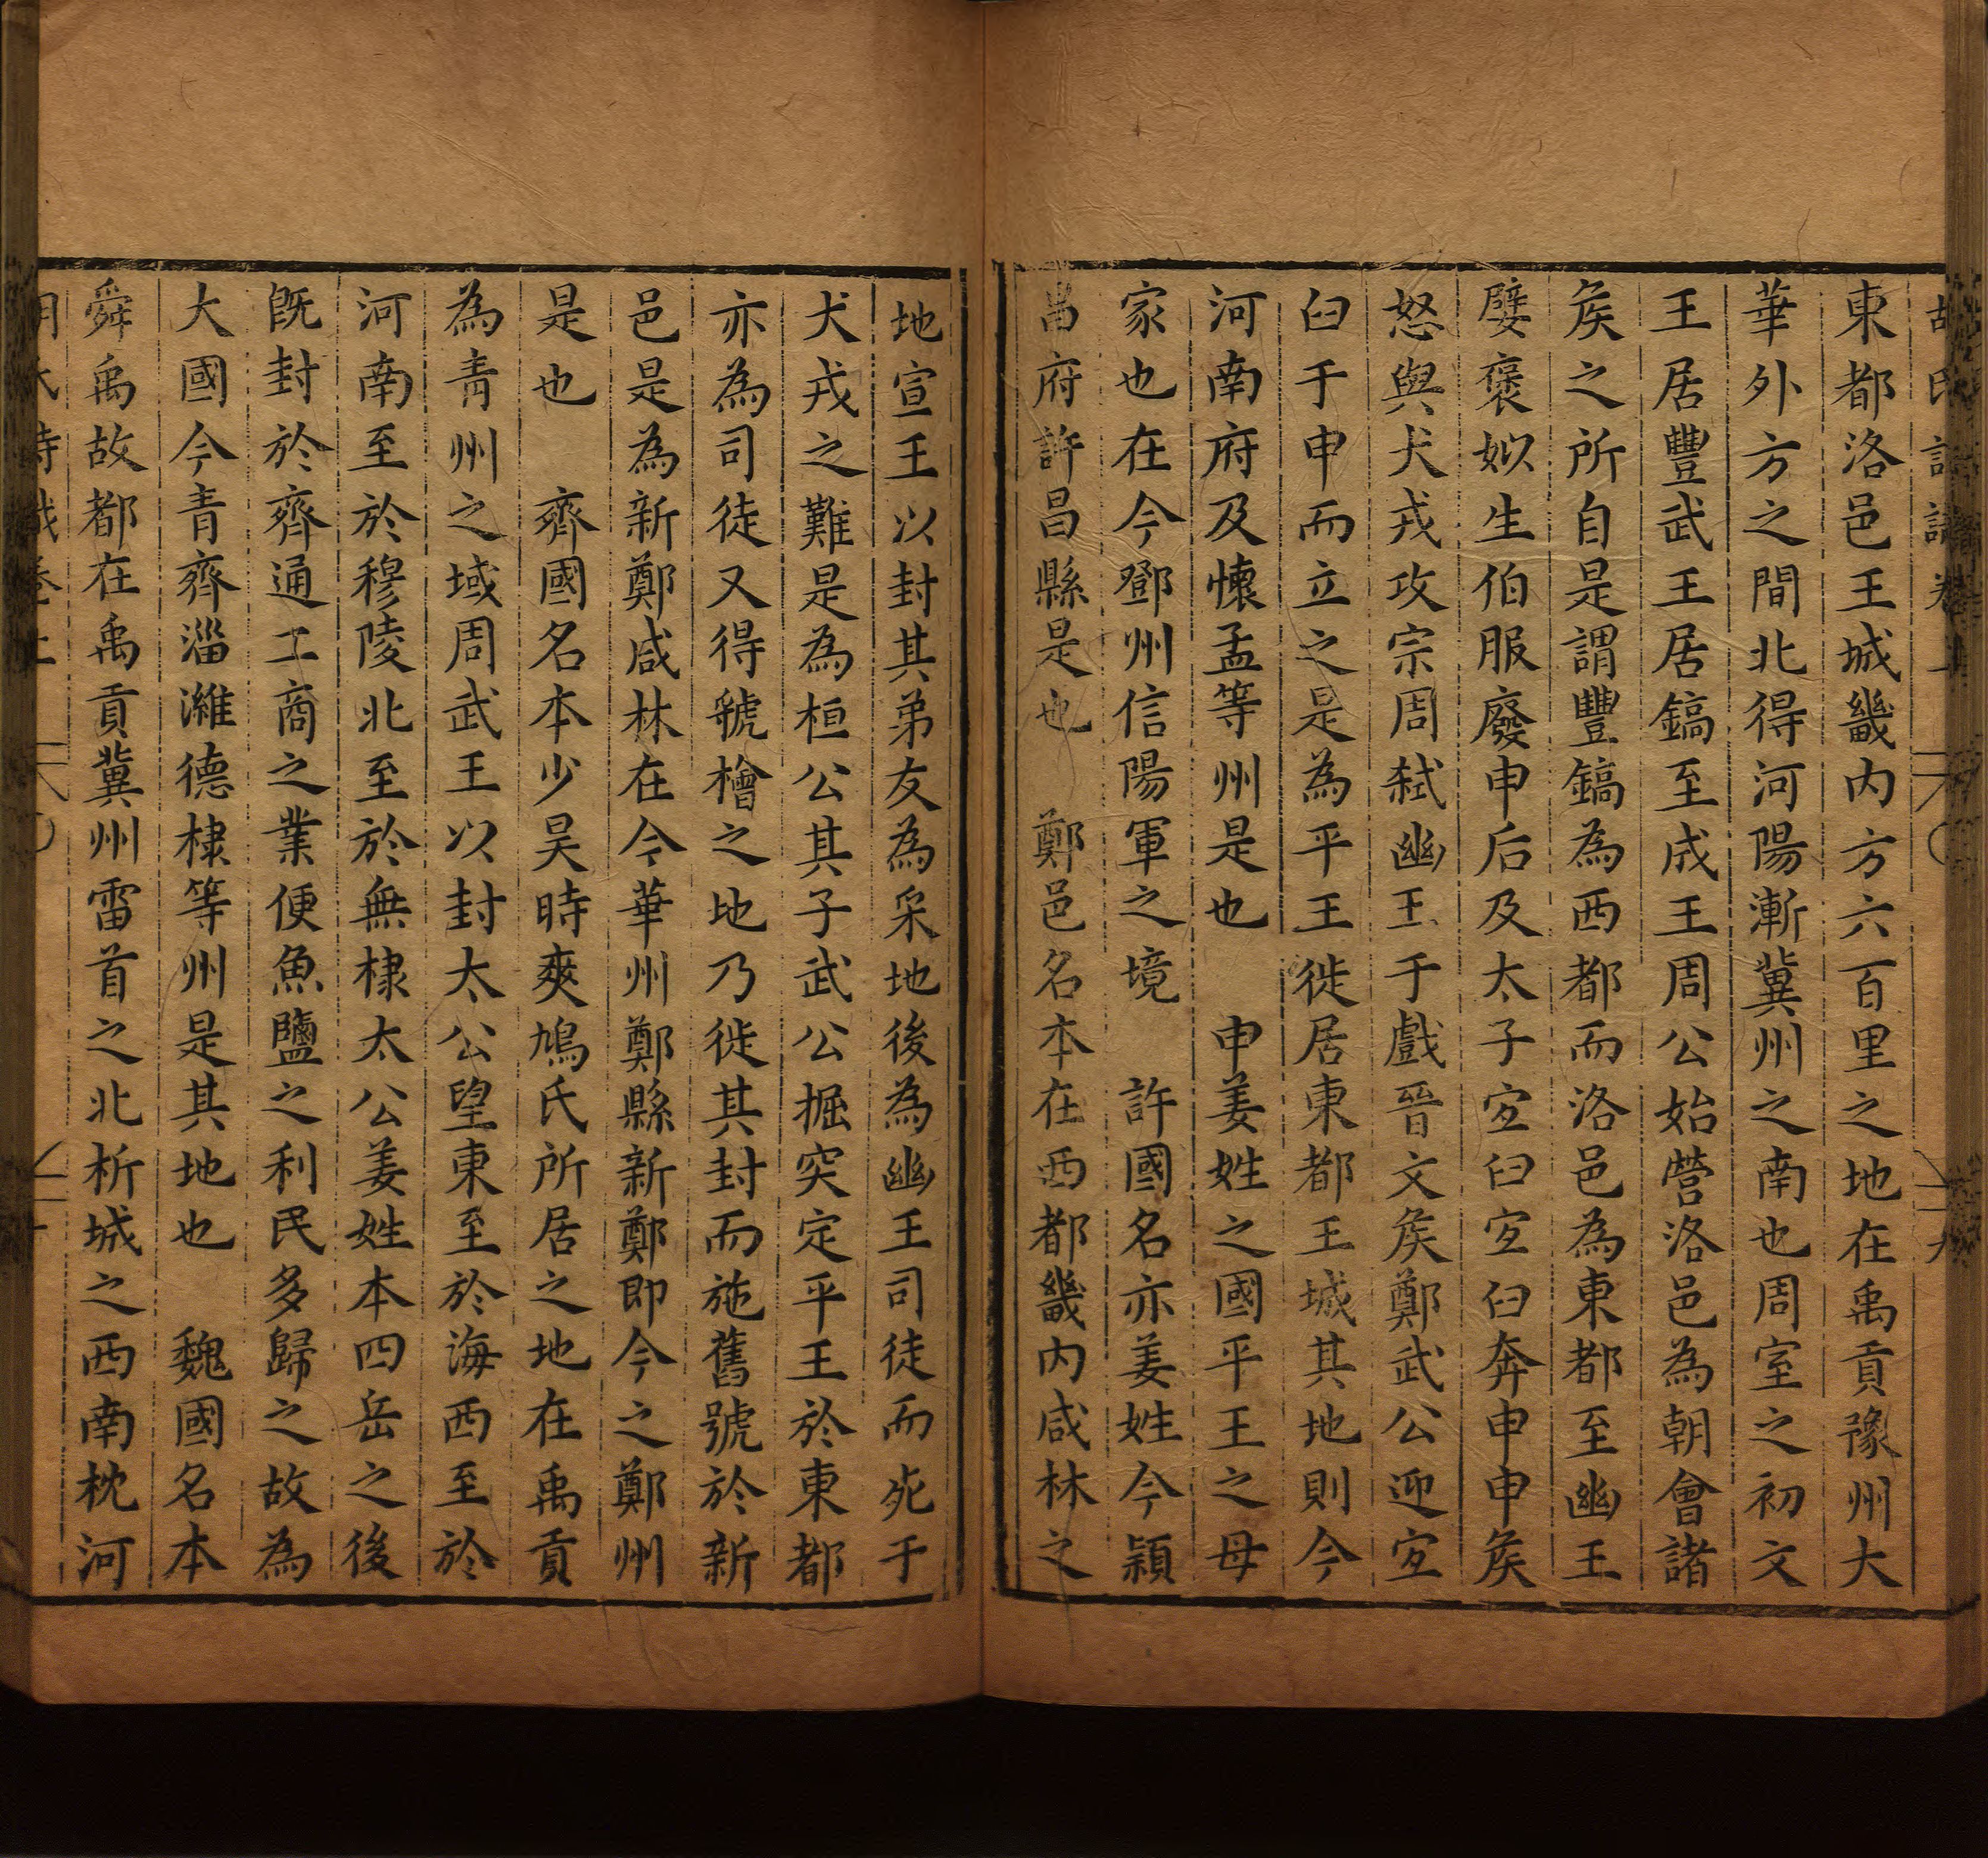 東都洛邑王城畿内方六百里之地在禹貢豫州大
華外方之間北得河陽漸冀州之南也周室之初文
王居豐武王居鎬至成王周公始營洛邑為朝會諸
矦之所自是謂豐鎬為西都而洛邑為東都至幽王
嬖褒姒生伯服廢申后及太子宜臼宜臼奔申申矦
怒與犬戎攻宗周弒幽王于戲晉文矦鄭武公迎宜
臼于申而立之是為平王徙居東都王城其地則今
河南府及懷孟等州是也　申姜姓之國平王之母
家也在今鄧州信陽軍之境　許國名亦姜姓今潁
昌府許昌縣是也　鄭邑名本在西都畿内咸林之
地宣王以封其弟友為采地後為幽王司徒而死于
犬戎之難是為桓公其子武公掘突定平王於東都
亦為司徒又得虢檜之地乃徙其封而施舊號於新
邑是為新鄭咸林在今華州鄭縣新鄭即今之鄭州
是也　齊國名本少昊時爽鳩氏所居之地在禹貢
為青州之域周武王以封太公望東至於海西至於
河南至於穆陵北至於無棣太公姜姓本四岳之後
既封於齊通工商之業便魚鹽之利民多歸之故為
大國今青齊淄濰德棣等州是其地也　魏國名本
舜禹故都在禹貢冀州雷首之北析城之西南枕河